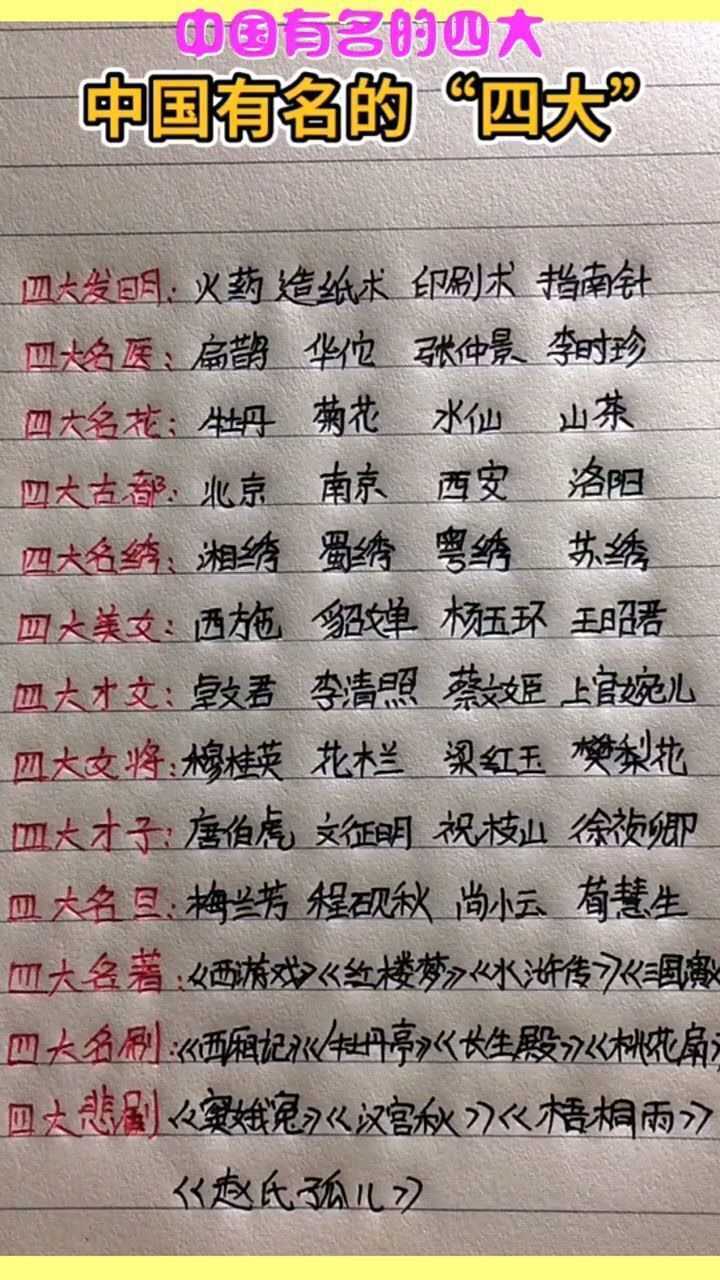 中国有名的四大
中国有名的“四大”
四大发明：火药 造纸术 印刷术 指南针
四大名医：扁鹊 华佗 张仲景 李时珍
四大名花：牡丹 菊花 水仙 山茶
四大古都：北京 南京 西安 洛阳
四大名绣：湘绣 蜀绣 粤绣 苏绣
四大美女：西施 貂婵 杨玉环 王昭君
四大才文：卓文君 李清照 蔡文姬 上官婉儿
四大文将：穆桂英 花木兰 梁红玉 樊梨花
四大才子：唐伯虎 文征明 祝枝山 徐祯卿
四大名旦：梅兰芳 程砚秋 尚小云 荀慧生
四大名著：《西游戏》《红楼梦》《水浒传》《三国演义
四大名剧：《西厢记》《牡丹亭》《长生殿》《桃花扇》
四大悲剧《窦娥冤》《汉宫秋》《梧桐雨》
《赵氏孤儿》